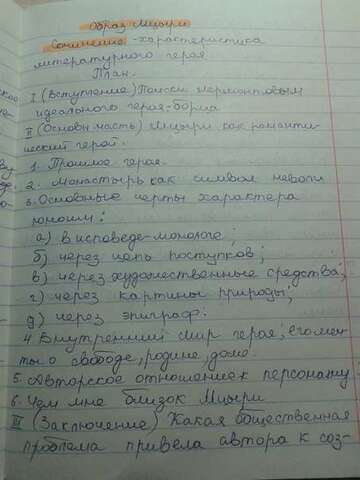 Образ Мцыри
Сочинение - характеристика
литературного героя.
План.
I (Вступление) Поиски Лермонтовым
идеального героя-борца
II (Основн. часть) Мцыри как романти-
ческий герой.
1. Прошлое героя.
2. Монастырь как символ неволи
3. Основные черты характера
юноши:
а) в исповеде-монологе;
б) через цепь поступков;
в) через художественные средства;
г) через картины природы;
д) через эпиграф.
4 Внутренний мир героя; его меч-
ты о свободе, родине, доме.
5. Авторское отношение к персонажу.
6. Чем мне близок Мцыри
III (Заключение) Какая общественная
проблема привела автора к соз-